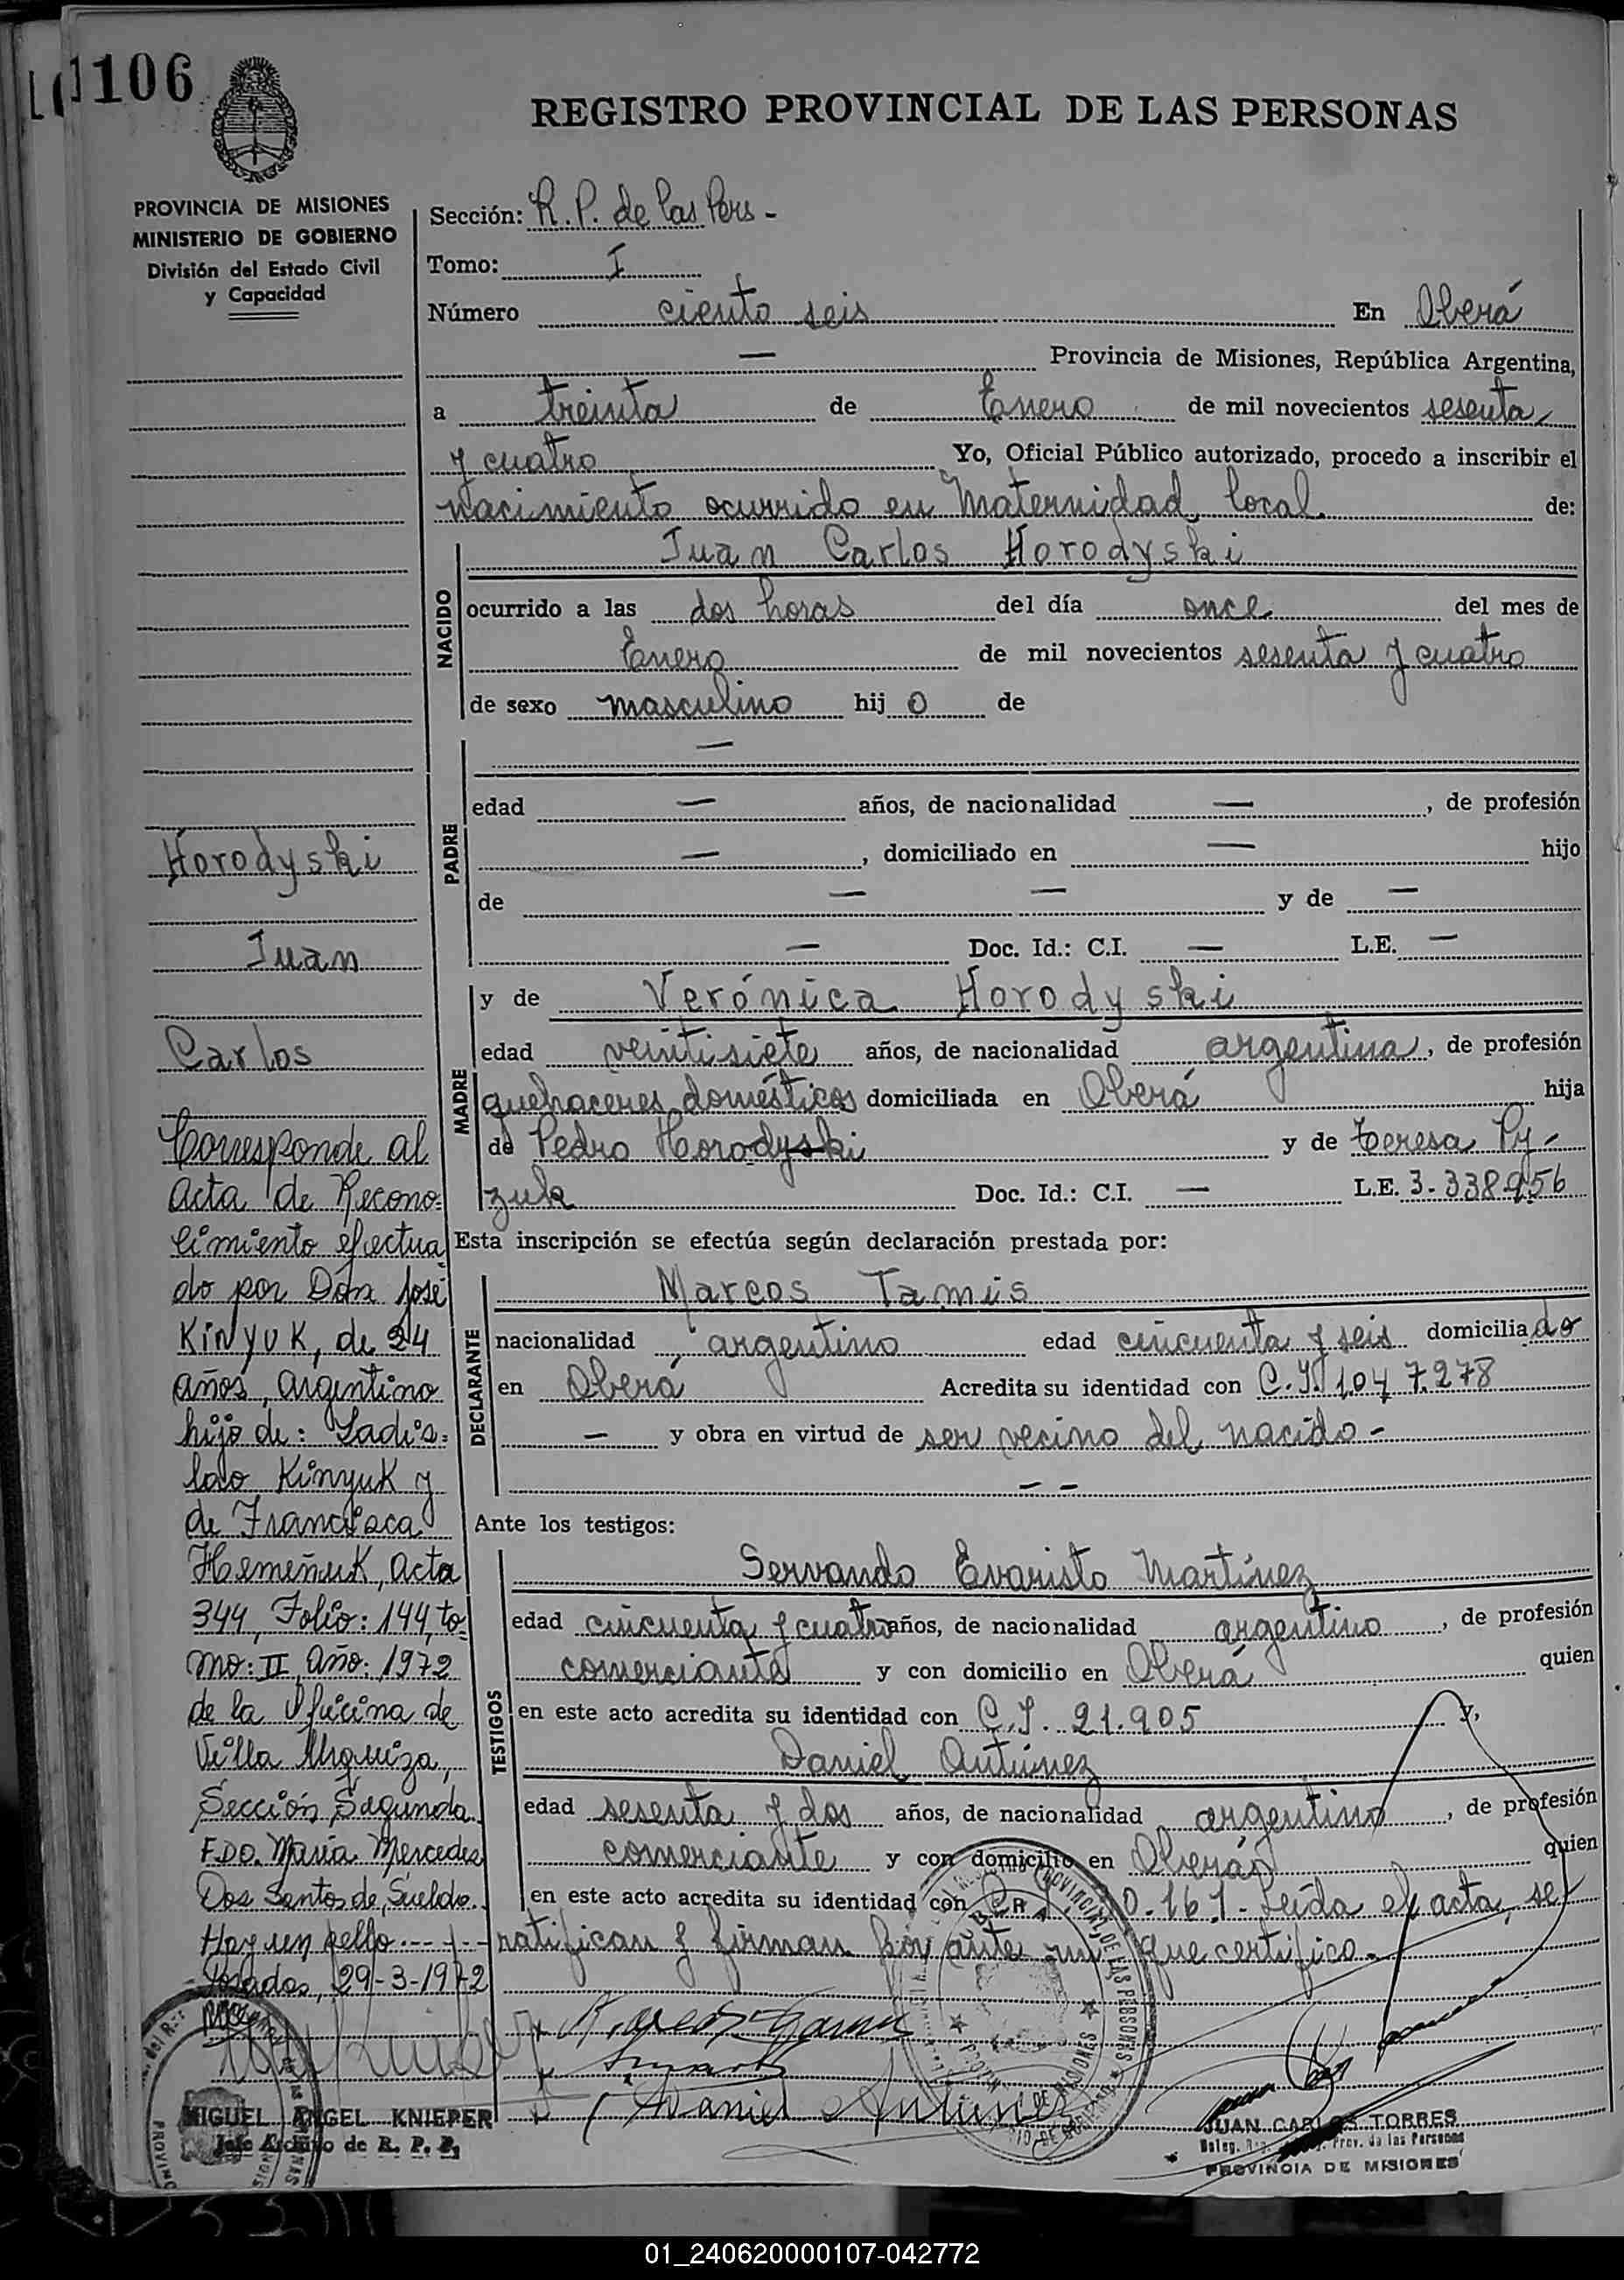 106
REGISTRO PROVINCIAL DE LAS PERSONAS
PROVINCIA DE MISIONES
MINISTERIO DE GOBIERNO
División del Estado Civil
y Capacidad
Sección: R. P. de las Pers -
Tomo: I
Número ciento seis En Oberá
— Provincia de Misiones, República Argentina,
a treinta de Enero de mil novecientos sesenta
y cuatro Yo, Oficial Público autorizado, procedo a inscribir el
nacimiento ocurrido en Maternidad local de:
NACIDO
Juan Carlos Horodyski
ocurrido a las dos horas del día once del mes de
Enero de mil novecientos sesenta y cuatro
de sexo masculino hij o de
PADRE
—
edad — años, de nacionalidad —, de profesión
—, domiciliado en — hijo
de — — y de —
— Doc. Id.: C.I. — L.E. —
MADRE
y de Verónica Horodyski
edad veintisiete años, de nacionalidad argentina, de profesión
quehaceres domésticos domiciliada en Oberá hija
de Pedro Horodyski y de Teresa Py-
zuk Doc. Id.: C.I. — L.E. 3.338.956
Esta inscripción se efectúa según declaración prestada por:
DECLARANTE
Marcos Tamis
nacionalidad argentino edad cincuenta y seis domicilia do
en Oberá Acredita su identidad con C.I. 1.047.278
— y obra en virtud de ser vecino del nacido -
— —
Ante los testigos:
TESTIGOS
Servando Evaristo Martínez
edad cincuenta y cuatro años, de nacionalidad argentino, de profesión
comerciante y con domicilio en Oberá quien
en este acto acredita su identidad con C.I. 21.905 y,
Daniel Antúnez
edad sesenta y dos años, de nacionalidad argentino, de profesión
comerciante y con domicilio en Oberá quien
en este acto acredita su identidad con 0.161 - Leída el acta, se
ratifican y firman por ante mí que certifico.
Daniel Antunez
JUAN CARLOS TORRES
Prov. de las Personas
PROVINCIA DE MISIONES
Horodyski
Juan
Carlos
Corresponde al
Acta de Recono=
cimiento efectua
do por Don José
Kinyuk, de 24
años, argentino
hijo de: Ladis=
lao Kinyuk y
de Francisca
Hemeñuk, acta
344, Folio: 144, to=
mo: II, Año: 1972
de la Oficina de
Villa Urquiza,
Sección Segunda.
FDO. María Mercedes
Dos Santos de Sueldo.
Hay un sello.
Posadas, 29-3-1972
MIGUEL ANGEL KNIEPER
Jefe Archivo de R. P. P.
01_240620000107-042772